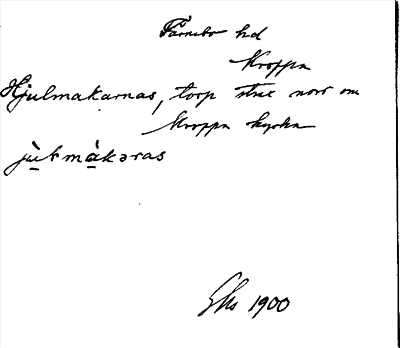 Färnebo hd
Kroppa
Hjulmakarnas, torp strax norr om
Kroppa kyrka
jù̱ɫmà̱kəras
1900